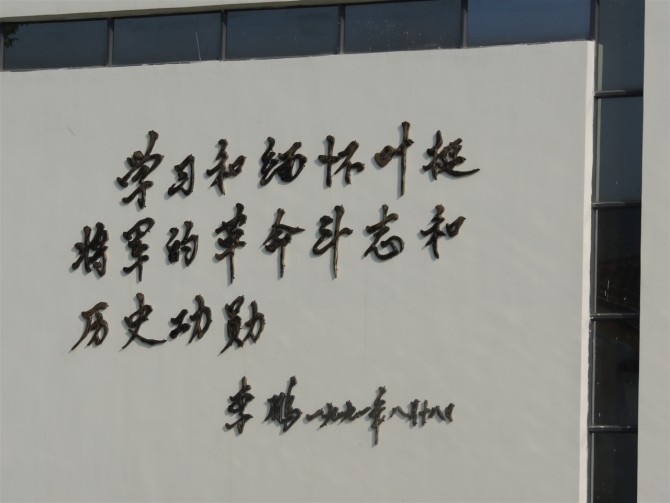 学习和缅怀叶挺
将军的革命斗志和
历史功勋
李鹏 一九九一年八月十八日